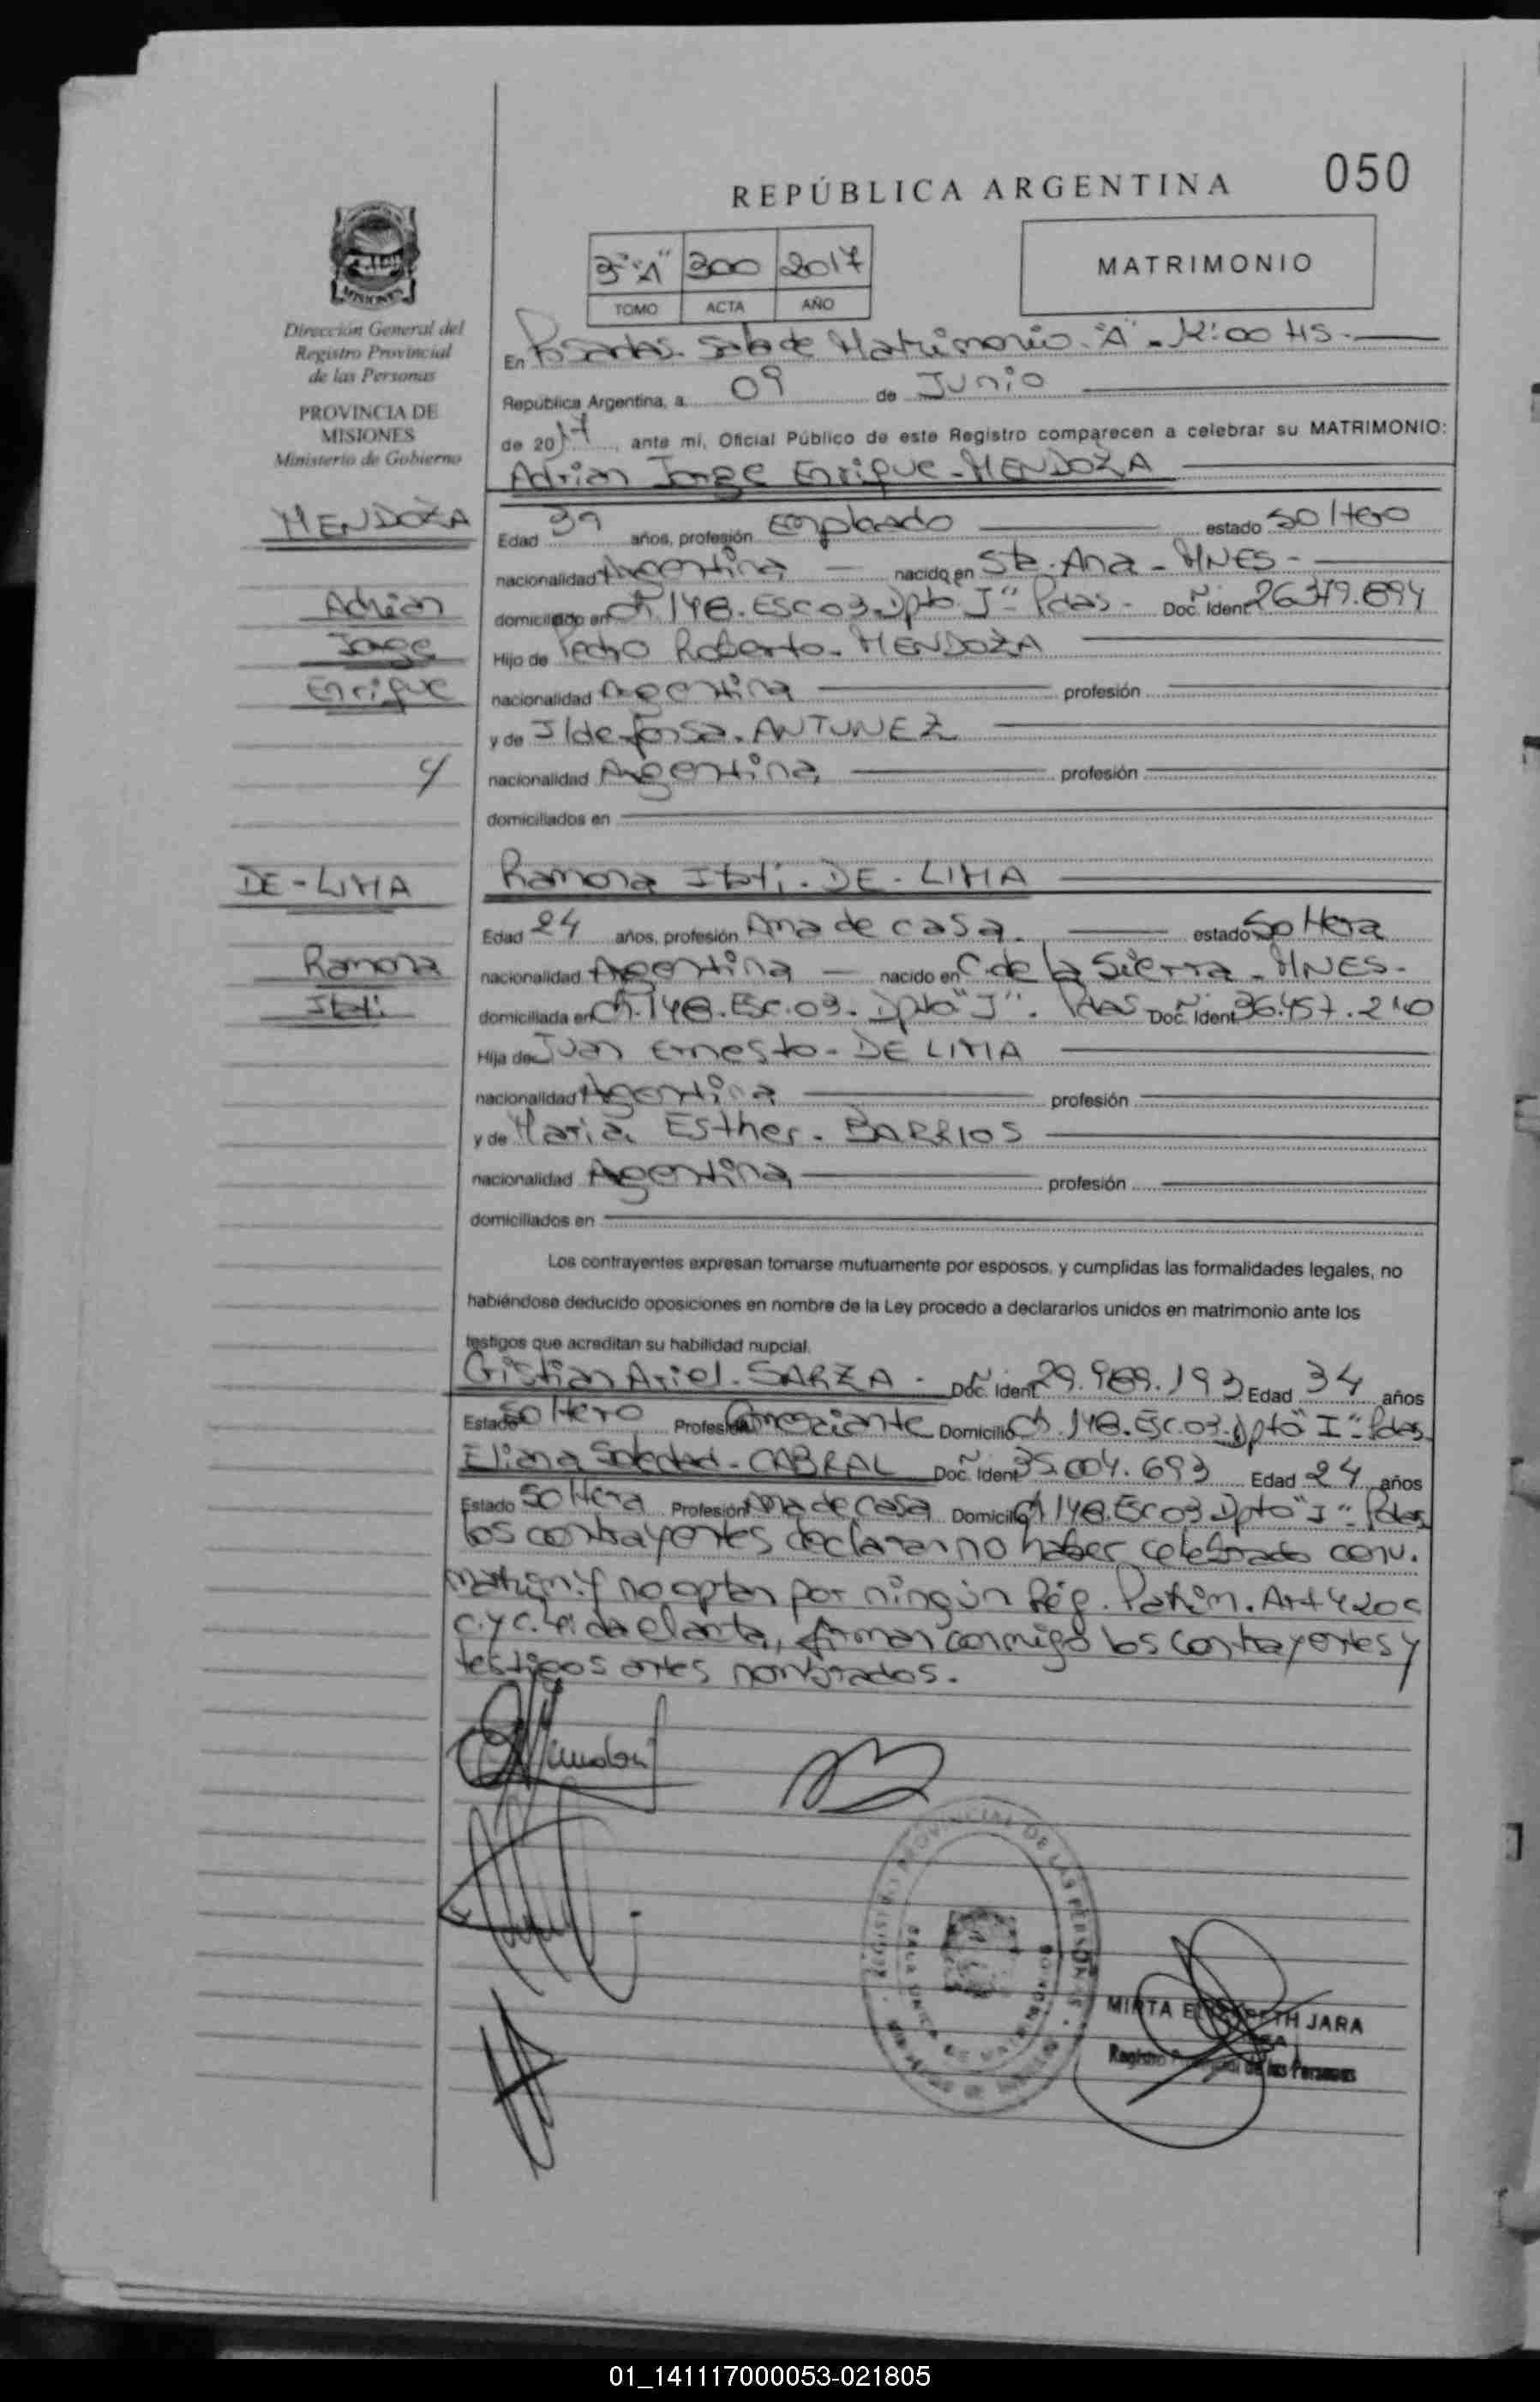 050
REPÚBLICA ARGENTINA
3° "A" 300 2017
TOMO ACTA AÑO
MATRIMONIO
MISIONES
Dirección General del
Registro Provincial
de las Personas
PROVINCIA DE
MISIONES
Ministerio de Gobierno
En Posadas. Sala de Matrimonio. "A" - 12:00 HS.
República Argentina, a 09 de Junio
de 2017, ante mí, Oficial Público de este Registro comparecen a celebrar su MATRIMONIO:
Adrian Jorge Enrique - MENDOZA
MENDOZA
Adrian
Jorge
Enrique
y
Edad 39 años, profesión Empleado estado Soltero
nacionalidad Argentina nacido en Sta. Ana - MNES -
domiciliado en Ch. 148. ESC 03. Dpto "J" Pdas - Doc. Ident. Nº 26.379.894
Hijo de Pedro Roberto - MENDOZA
nacionalidad Argentina profesión
y de Ildefonsa. ANTUNEZ
nacionalidad Argentina profesión
domiciliados en
DE - LIMA
Ramona
Itati
Ramona Itati. DE - LIMA
Edad 24 años, profesión Ama de casa. estado Soltera
nacionalidad Argentina nacido en C. de la Sierra - MNES -
domiciliada en Ch. 148. Esc. 03. Dpto "J". Pdas Doc. Ident. Nº 36.457.210
Hija de Juan Ernesto - DE LIMA
nacionalidad Argentina profesión
y de Maria Esther. BARRIOS
nacionalidad Argentina profesión
domiciliados en
Los contrayentes expresan tomarse mutuamente por esposos, y cumplidas las formalidades legales, no
habiéndose deducido oposiciones en nombre de la Ley procedo a declararlos unidos en matrimonio ante los
testigos que acreditan su habilidad nupcial.
Cristian Ariel. SARZA - Doc. Ident. Nº 29.989.193 Edad 34 años
Estado Soltero Profesión Comerciante Domicilio Ch. 148. Esc. 03. Dpto "I" - Pdas
Eliana Soledad - CABRAL Doc. Ident. Nº 35.004.693 Edad 24 años
Estado Soltera Profesión Ama de casa Domicilio Ch 148. Esc 03 Dpto "I" - Pdas
los contrayentes declaran no haber celebrado conv.
matrim. y no optan por ningún Rég. Patrim. Art 420 c
C.y C. Leida el acta, firman conmigo los contrayentes y
testigos antes nombrados.
REGISTRO PROVINCIAL DE LAS PERSONAS
MIRTA ELIZABETH JARA
Registro Provincial de las Personas
01_141117000053-021805